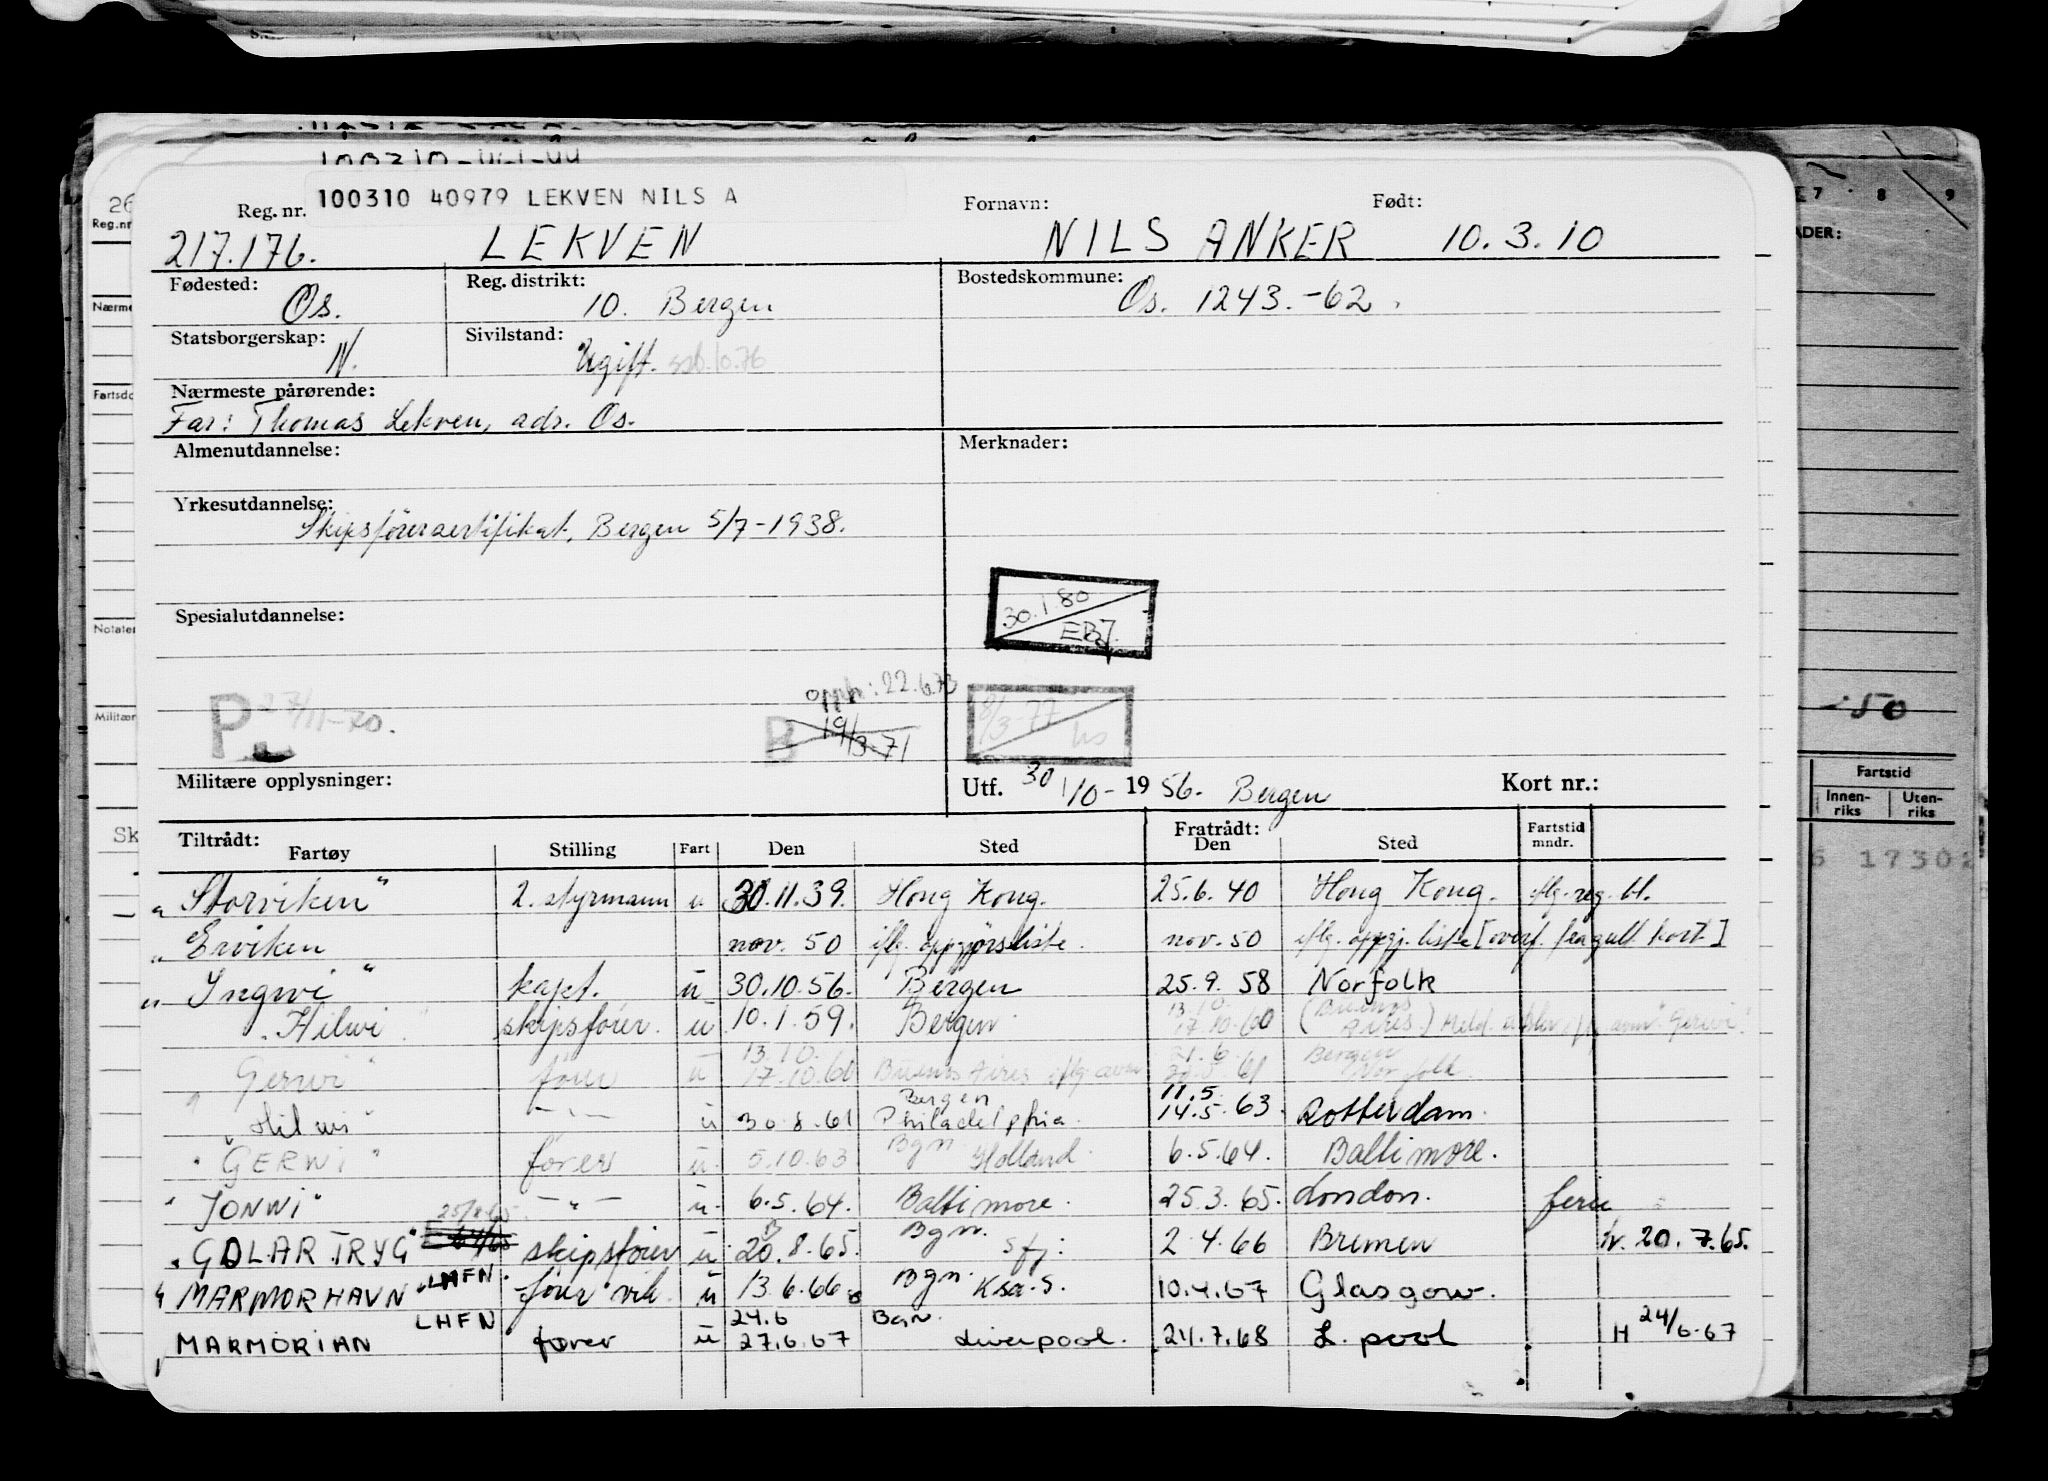 100310 40979 LEKVEN NILS A
Reg. nr. Fornavn: Født:
217.176. LEKVEN NILS ANKER 10.3.10
Fødested: Os. Reg. distrikt: 10. Bergen Bostedskommune: Os. 1243.-62.
Statsborgerskap: N. Sivilstand: Ugift.
Nærmeste pårørende:
Far: Thomas Lekven, adr. Os.
Almenutdannelse: Merknader:
Yrkesutdannelse:
Skipsførersertifikat, Bergen 5/7-1938.
30.1.80
Spesialutdannelse:
P 27/11-70. opph: 22.6.73
B 19/3-71 8/3-77
Militære opplysninger: Utf. 30/10- 1956. Bergen Kort nr.:
Tiltrådt: Fratrådt:
Fartøy Stilling Fart Den Sted Den Sted Fartstid mndr.
"Storviken" 2. styrmann u 30.11.39. Hong Kong. 25.6.40 Hong Kong. iflg. reg. bl.
"Erviken nov. 50 iflg. oppgjørsliste. nov. 50 iflg. oppgj. liste [overf. fra gult kort]
"Ingwi" kapt. u 30.10.56. Bergen 25.9.58 Norfolk
"Hilwi" skipsfører. u 10.1.59. Bergen 13.10. 17.10.60 (Buenos Aires)
"Gerwi" fører u 13.10. 17.10.60 Buenos Aires 21.6. 61 Bergen Norfolk.
"Hilwi" -"- u 30.8.61 Bergen. Philadelphia. 11.5. 14.5.63. Rotterdam.
"GERWI" fører u. 5.10.63 Bgn. Holland. 6.5.64. Baltimore.
"JONWI" -"- u. 6.5.64. Baltimore. 25.3.65. London. ferie
"GOLAR TRYG" skipsfører u 20.8.65. Bgn. 2.4.66 Bremen 20.7.65.
"MARMORHAVN" LHFN. fører vik u 13.6.66. Bgn. 10.4.67 Glasgow.
"MARMORIAN LHFN fører u 24.6 27.6.67 Bgn. Liverpool. 24.7.68 L.pool H 24/6-67
-50
Fartstid
Innenriks Utenriks